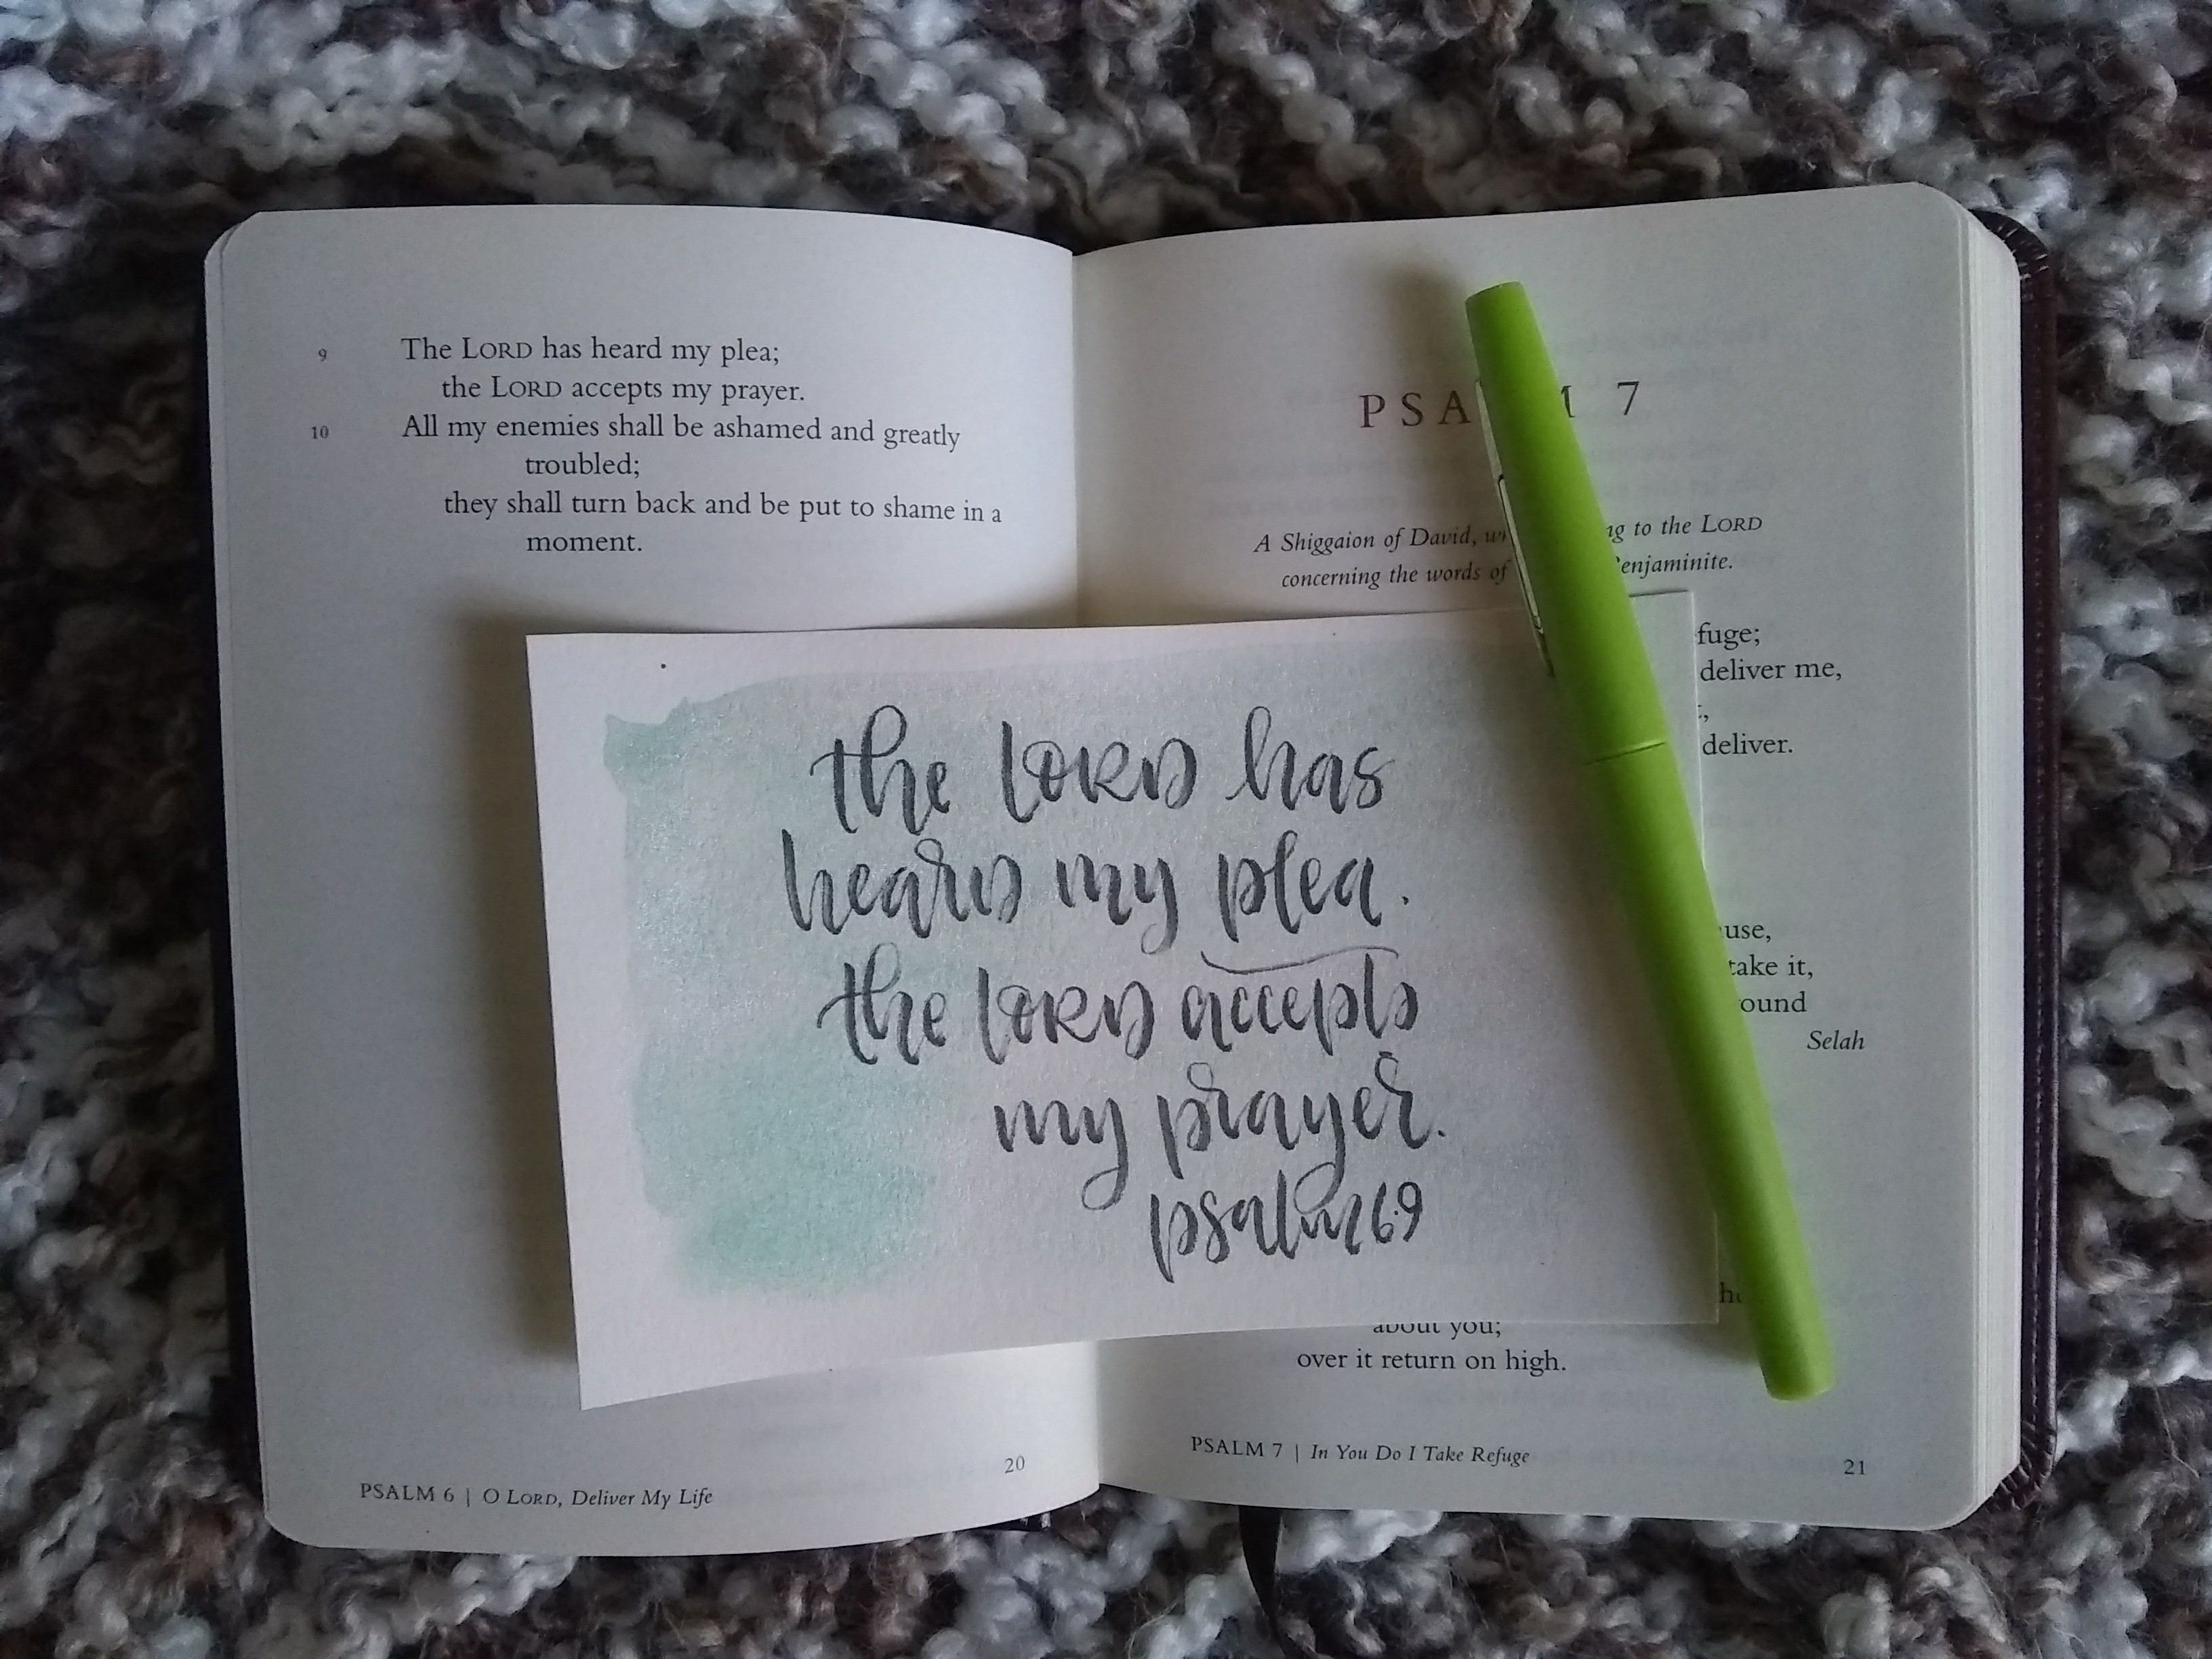 9 The LORD has heard my plea;
the LORD accepts my prayer.
10 All my enemies shall be ashamed and greatly
troubled;
they shall turn back and be put to shame in a
moment.
PSALM 6 | O LORD, Deliver My Life
20
the LORD has
heard my plea.
the LORD accepts
my prayer.
psalm 6:9
PSA 7
A Shiggaion of David, to the LORD
concerning the words of
deliver me,
deliver.
take it,
Selah
about you;
over it return on high.
PSALM 7 | In You Do I Take Refuge
21